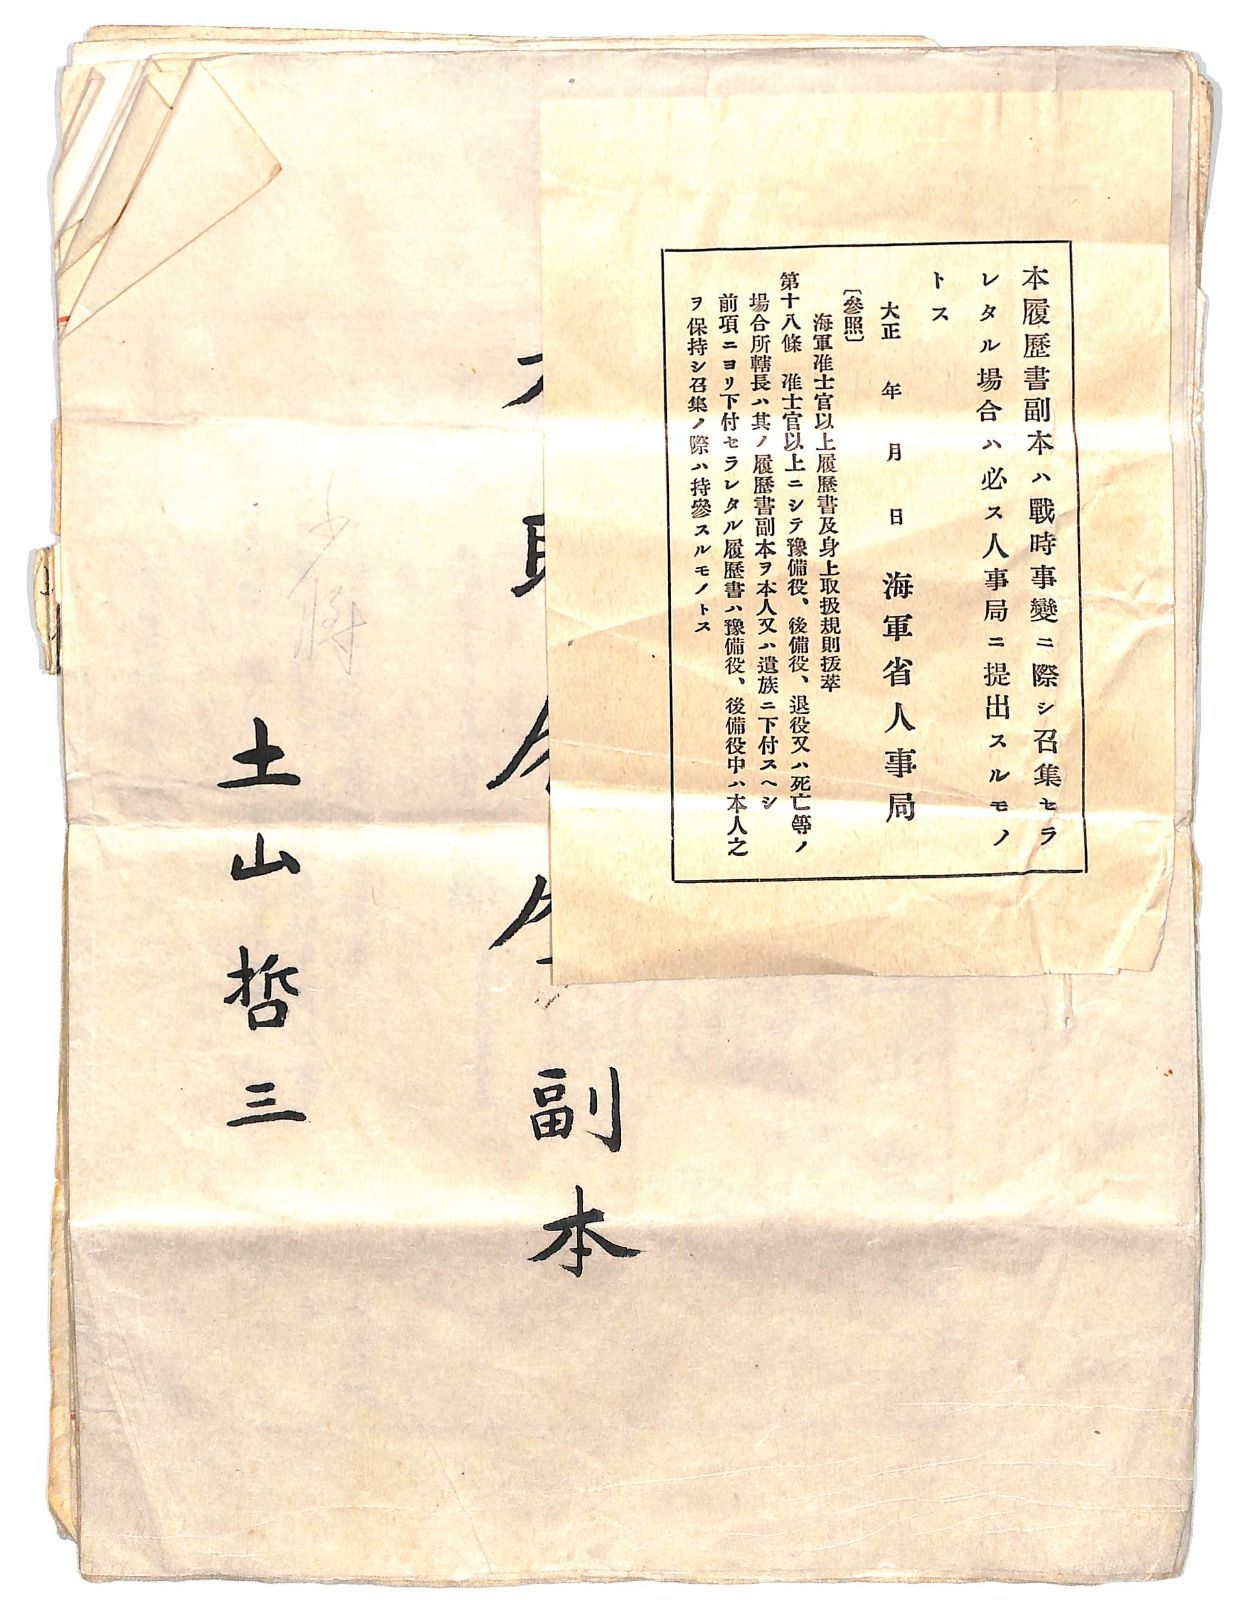 本履歷書副本ハ戰時事變ニ際シ召集セラ
レタル場合ハ必ス人事局ニ提出スルモノ
トス
大正　年　月　日　海軍省人事局
〔參照〕
海軍准士官以上履歷書及身上取扱規則拔萃
第十八條　准士官以上ニシラ豫備役、後備役、退役又ハ死亡等ノ
場合所轄長ハ其ノ履歷書副本ヲ本人又ハ遺族ニ下付スヘシ
前項ニヨリ下付セラレタル履歷書ハ豫備役、後備役中ハ本人之
ヲ保持シ召集ノ際ハ持參スルモノトス
副本
少将
土山哲三